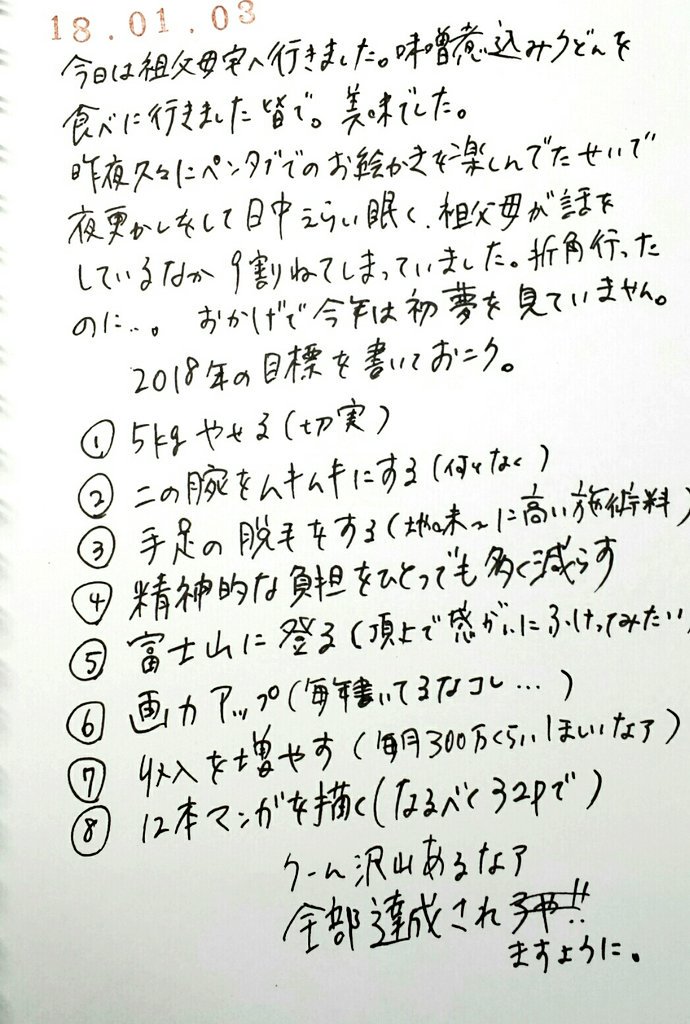 18.01.03
今日は祖父母宅へ行きました。味噌煮込みうどんを
食べに行きました皆で。美味でした。
昨夜久々にペンタブでのお絵かきを楽しんでたせいで
夜更かしをして日中えらい眠く、祖父母が話を
しているなか9割ねてしまっていました。折角行った
のに…。おかげで今年は初夢を見ていません。
2018年の目標を書いておこう。
① 5kgやせる(切実)
② 二の腕をムキムキにする(何となく)
③ 手足の脱毛をする(地味〜に高い施術料)
④ 精神的な負担をひとつでも多く減らす
⑤ 富士山に登る(頂上で感がいにふけってみたい)
⑥ 画力アップ(毎年書いてるなコレ…)
⑦ 収入を増やす(毎月300万くらいほしいなァ)
⑧ 12本マンガを描く(なるべく32Pで)
うーん沢山あるなァ
全部達成され
ますように。